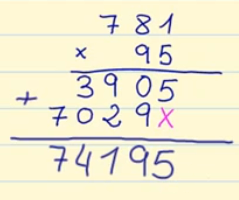 781
× 95
3905
+
7029x
74195